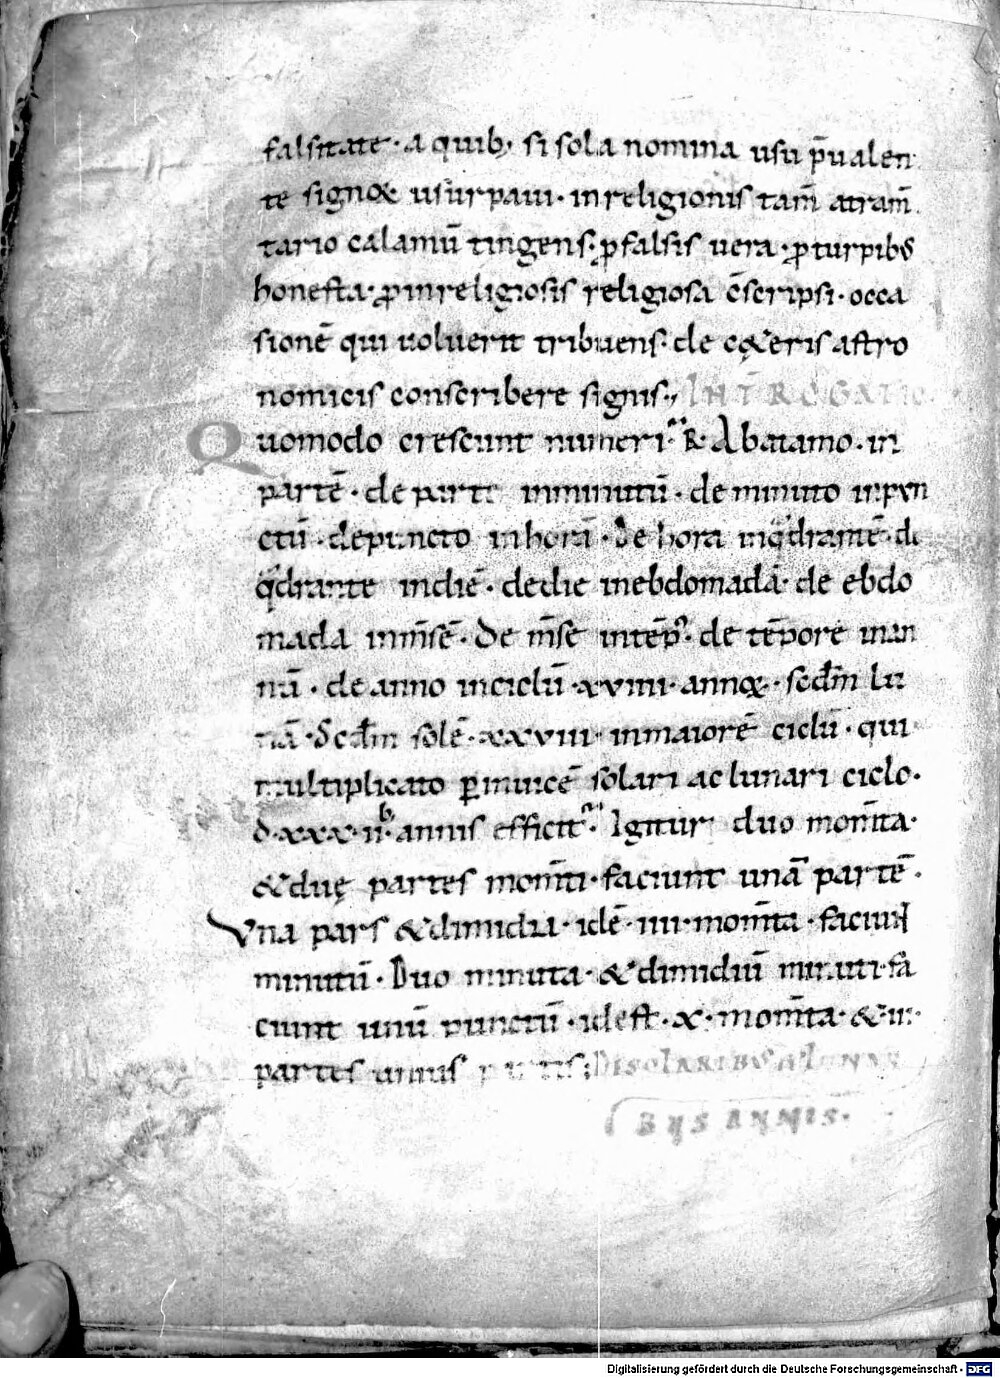 falsitate · a quib; si sola nomina usu p̄ualen
te signoꝝ usurpaui · inreligionis tam̄ atram̄
tario calamū tingens · ꝓ falsis uera · ꝓ turpibus
honesta · ꝓ inreligiosis religiosa c̄scripsi · occa
sionē qui uoluerit tribuens · de cęteris astro
nomicis conscribere signis · INT̄ROGATIO
Quomodo crescunt numeri · R̄ · Abatamo · in
partē · de parte inminutū · de minuto inpun
ctū · depuncto inhorā · De hora inqdrantē · de
qdrante indiē · dedie inebdomadā · de ebdo
mada inm̄sē · De m̄se intēp̄ · de tēpore inan
nū · de anno inciclū · xviiii · annoꝝ · scđm lu
nā · Scđm solē · xxviii · inmaiorē ciclū · qui
multiplicato ꝑinuicē solari ac lunari ciclo ·
d · xxx · ii · annis efficit · Igitur duo mom̄ta ·
& duę partes mom̄ti · faciunt unā partē ·
Vna pars & dimidia · idē · iiii · mom̄ta · faciunt
minutū · Duo minuta · & dimidiū minuti · fa
ciunt unū punctū · idest · x · mom̄ta · & iii ·
partes unius partis; DESOLARIBUS & LUNAR
IBUS ANNIS ·
Digitalisierung gefördert durch die Deutsche Forschungsgemeinschaft - DFG